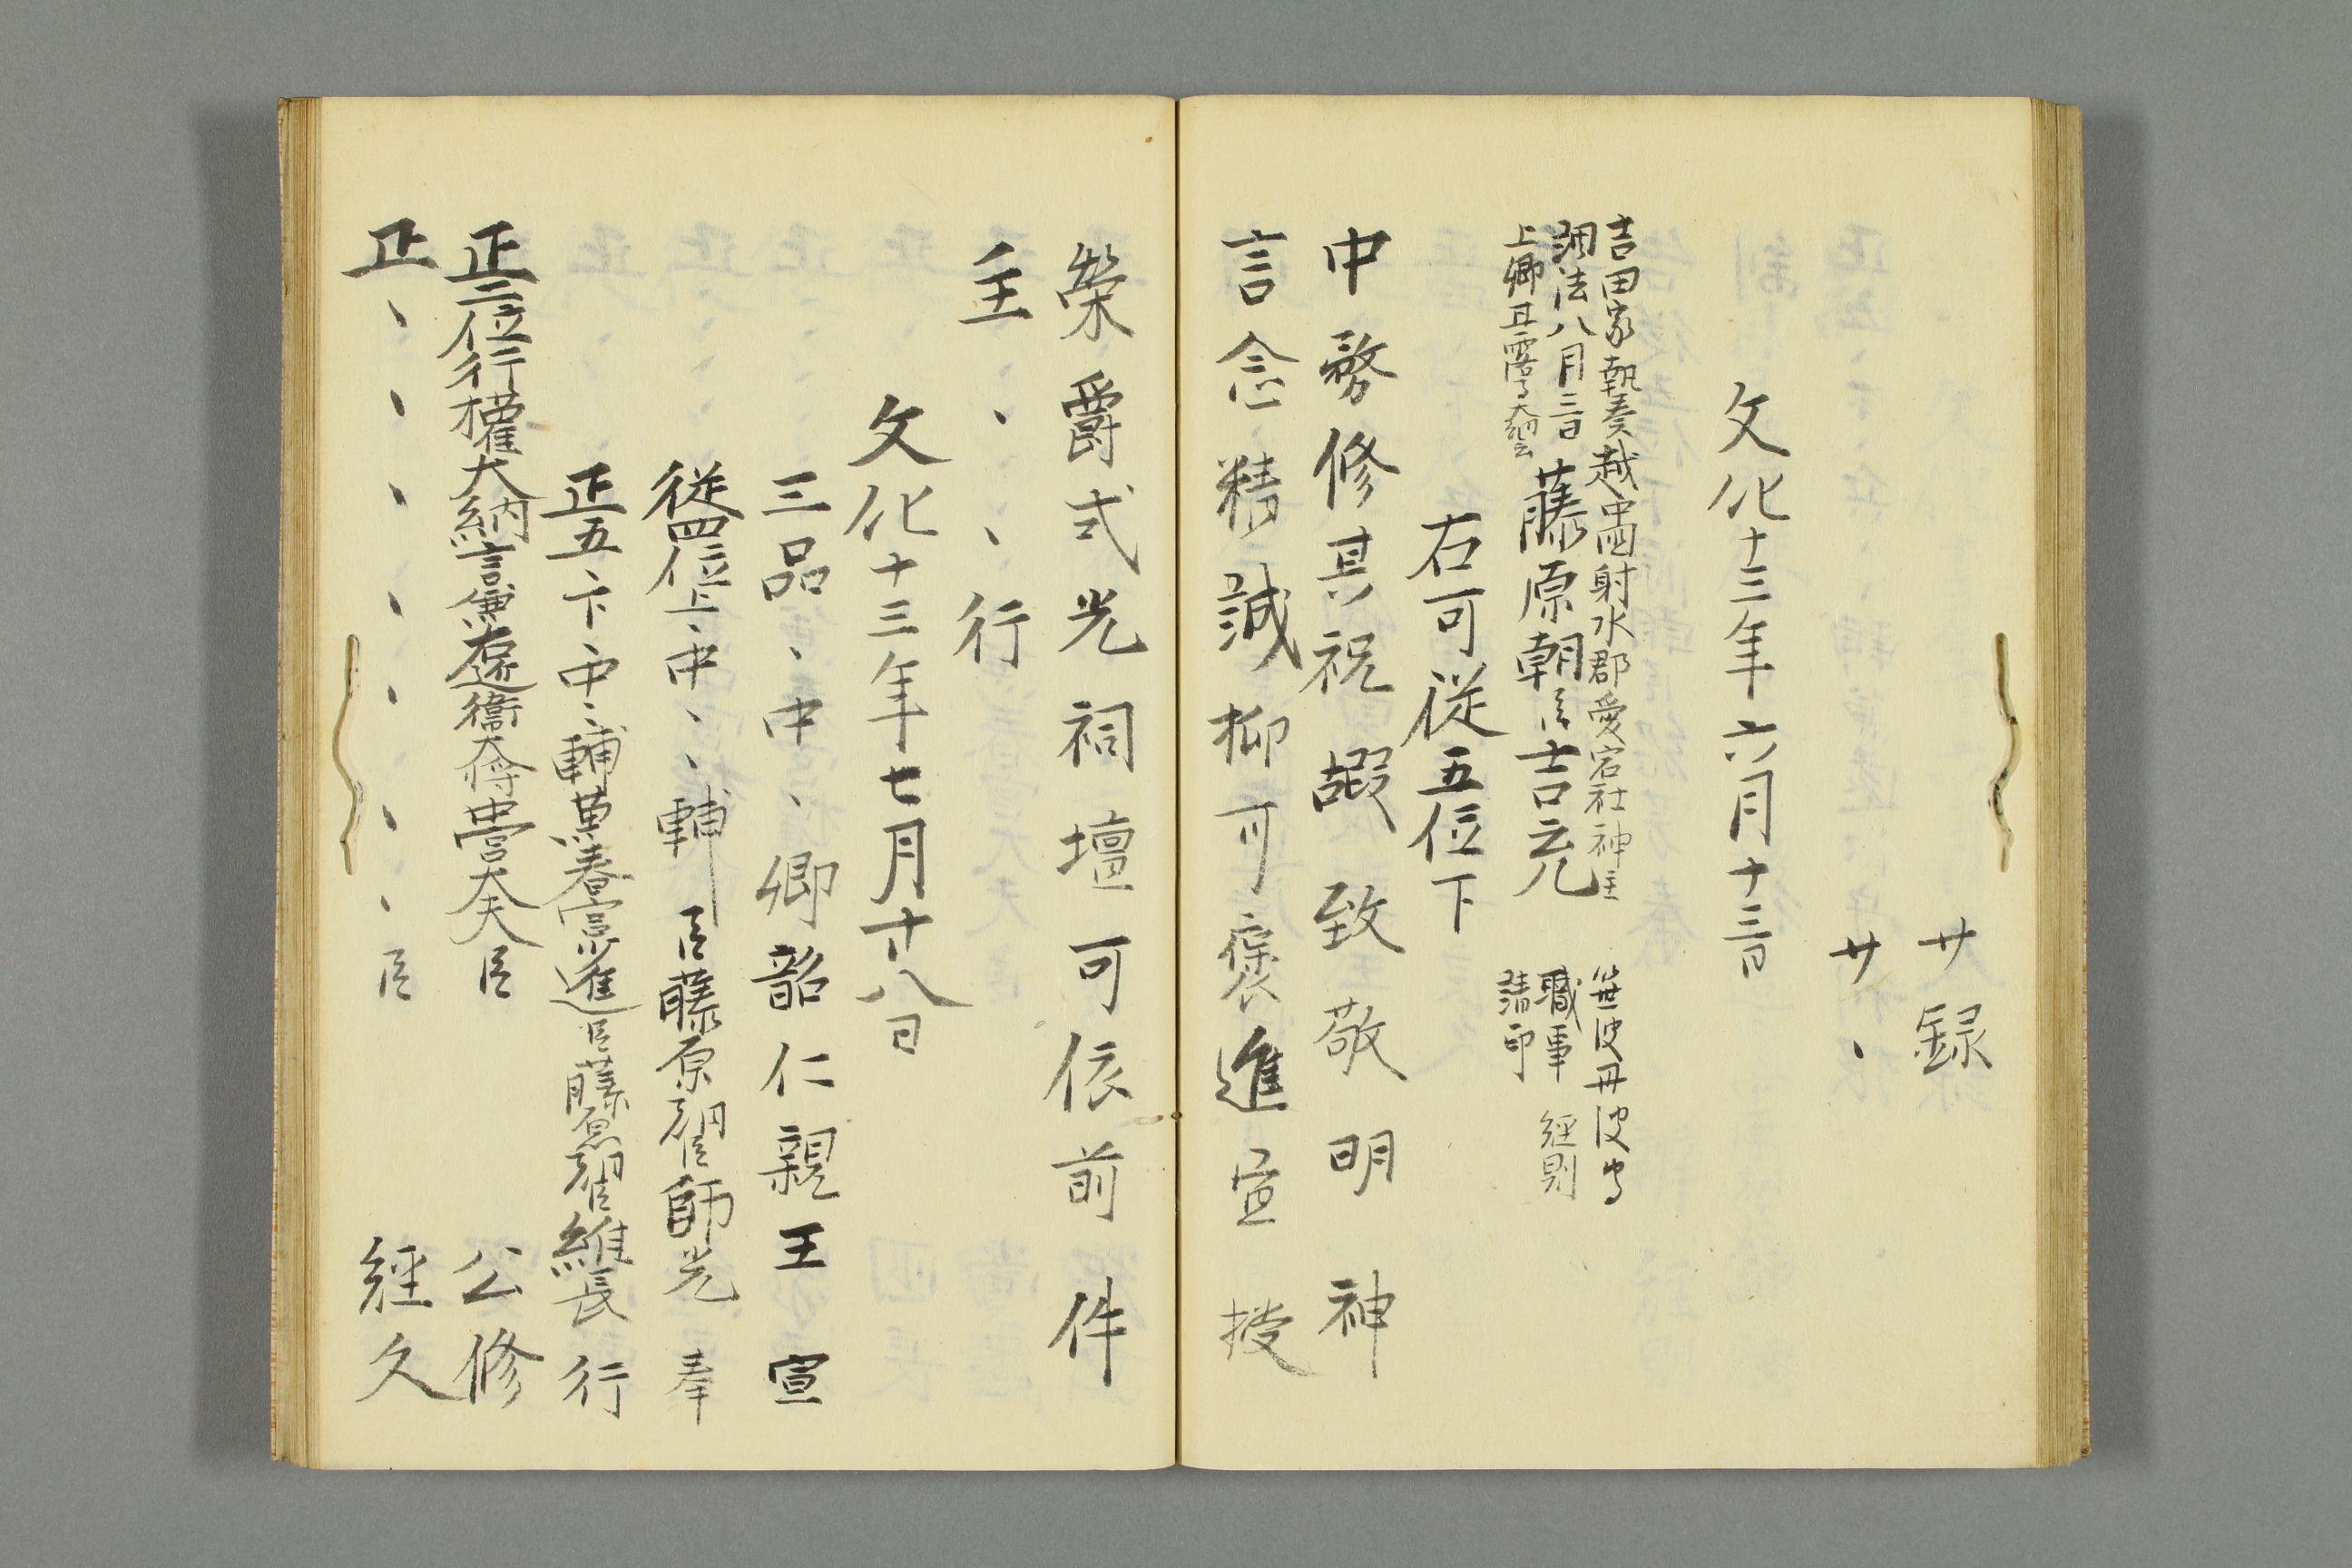 廿録
廿、
文化十三年六月十三日
吉田家執奏越中国射水郡愛宕社神主
調法八月三日
上卿
藤原朝臣吉充
丹波守
職事 経則
請印
右可従五位下
中務修其祝嘏致敬明神
言念精誠抑可褒進宣授
栄爵式光祠壇可依前件
主、、行
文化十三年七月廿八日
三品、中、卿韶仁親王宣
従四位上、中、、輔臣藤原朝臣師光奉
正五下中、輔兼春宮大進臣藤原朝臣維長行
正二位行権大納言兼右近衛大将春宮大夫臣公修
正、、、、、、、臣経久